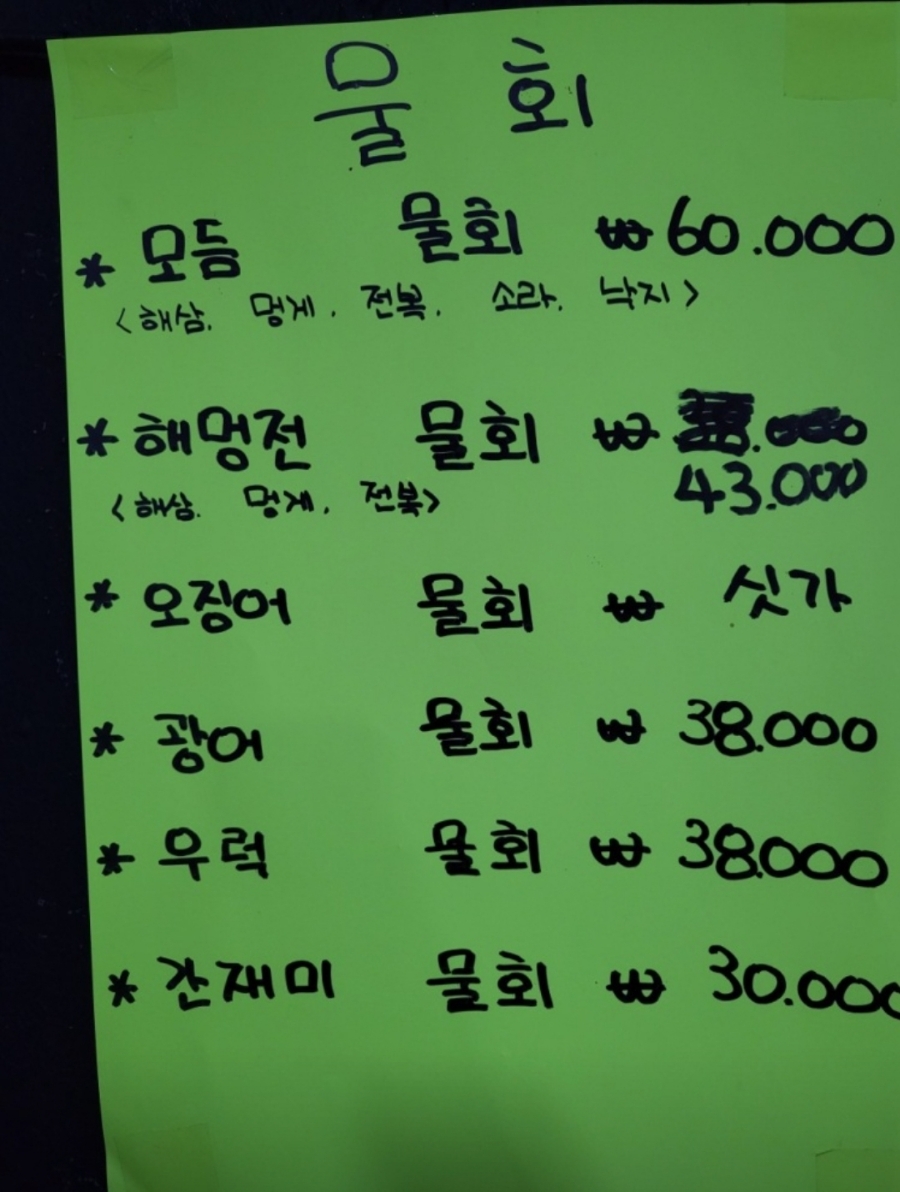 물회
* 모듬 물회 ₩60.000
<해삼. 멍게. 전복. 소라. 낙지>
* 해멍전 물회 ₩
43.000
<해삼. 멍게. 전복>
* 오징어 물회 ₩ 싯가
* 광어 물회 ₩ 38.000
* 우럭 물회 ₩ 38.000
* 간재미 물회 ₩ 30.000